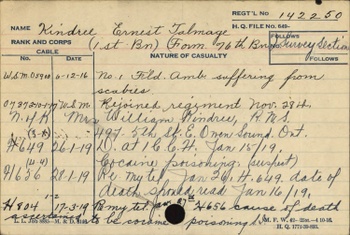 REGT'L No 142250
H. Q. FILE No. 649-
NAME Kindree Ernest Talmage
RANK AND CORPS (1st Bn) Form. 76th Bn. Survey Section
CABLE
FOLLOWS
No. DATE NATURE OF CASUALTY FOLLOWS
6-12-16 No. 1 Fld. Amb. suffering from
scabies
Rejoined regiment Nov. 28th.
N.O.K. Mrs William Kindree, R.M.S.
497 5th St. E. Owen Sound. Ont.
H649 26-1-19 D. at 1 C.C.H. Jan 15/19,
Cocaine poisoning. (suspect)
H656 28-1-19 Re my tel Jan 26 H.649 date of
death should read Jan 16/19,
H804 17-3-19 Re my tel Jan H656 cause of death
ascertained to be cocaine poisoning
M. F. W.